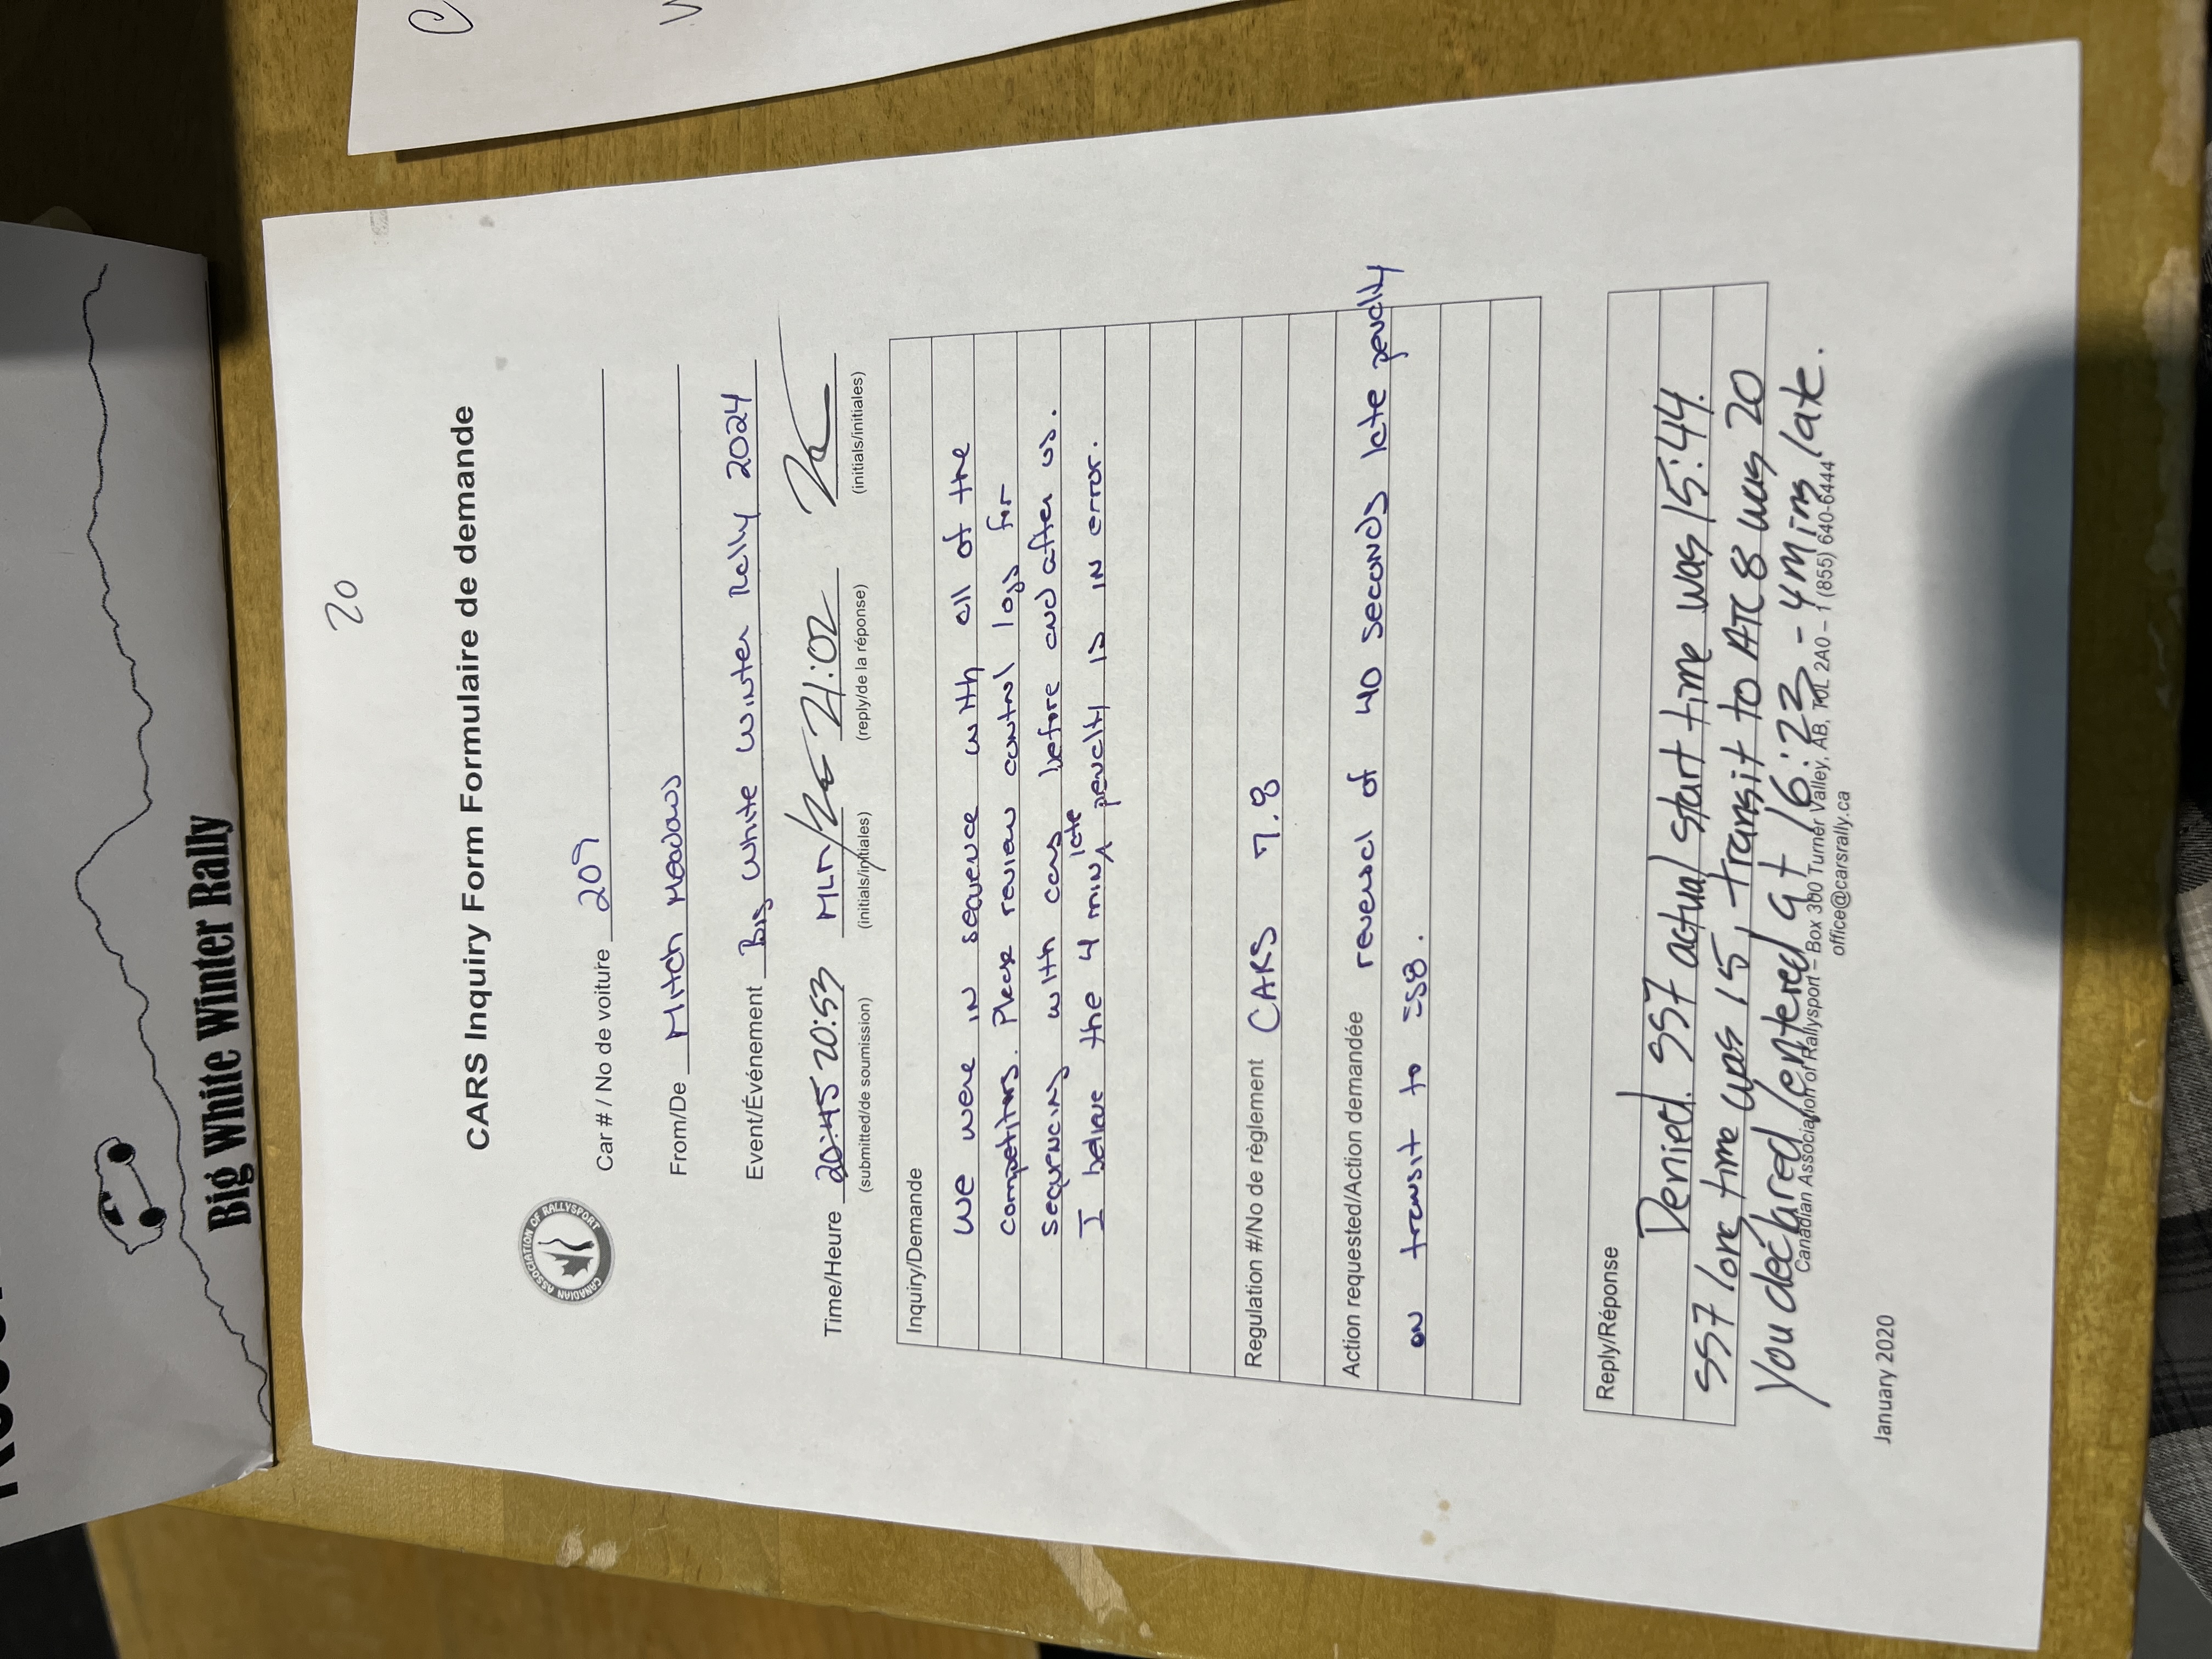 Big White Winter Rally
20
CARS Inquiry Form Formulaire de demande
CANADIAN ASSOCIATION OF RALLYSPORT
Car # / No de voiture 209
From/De Mitch Meadows
Event/Événement Big White Winter Rally 2024
Time/Heure 20:45 20:53 MLM/ 21:02
(submitted/de soumission) (initials/initiales) (reply/de la réponse) (initials/initiales)
Inquiry/Demande
We were in sequence with all of the
competitors. Please review control logs for
sequencing with cars before and after us.
I believe the 4 min late penalty is in error.
Regulation #/No de règlement CARS 7.8
Action requested/Action demandée reversal of 40 seconds late penalty
on transit to SS8.
Reply/Réponse
Denied. SS7 actual start time was 15:44.
SS7 lore time was 15, transit to ATC 8 was 20
You declared/entered at 16:23 - 4 mins late.
Canadian Association of Rallysport – Box 300 Turner Valley, AB, T0L 2A0 – 1 (855) 640-6444
office@carsrally.ca
January 2020